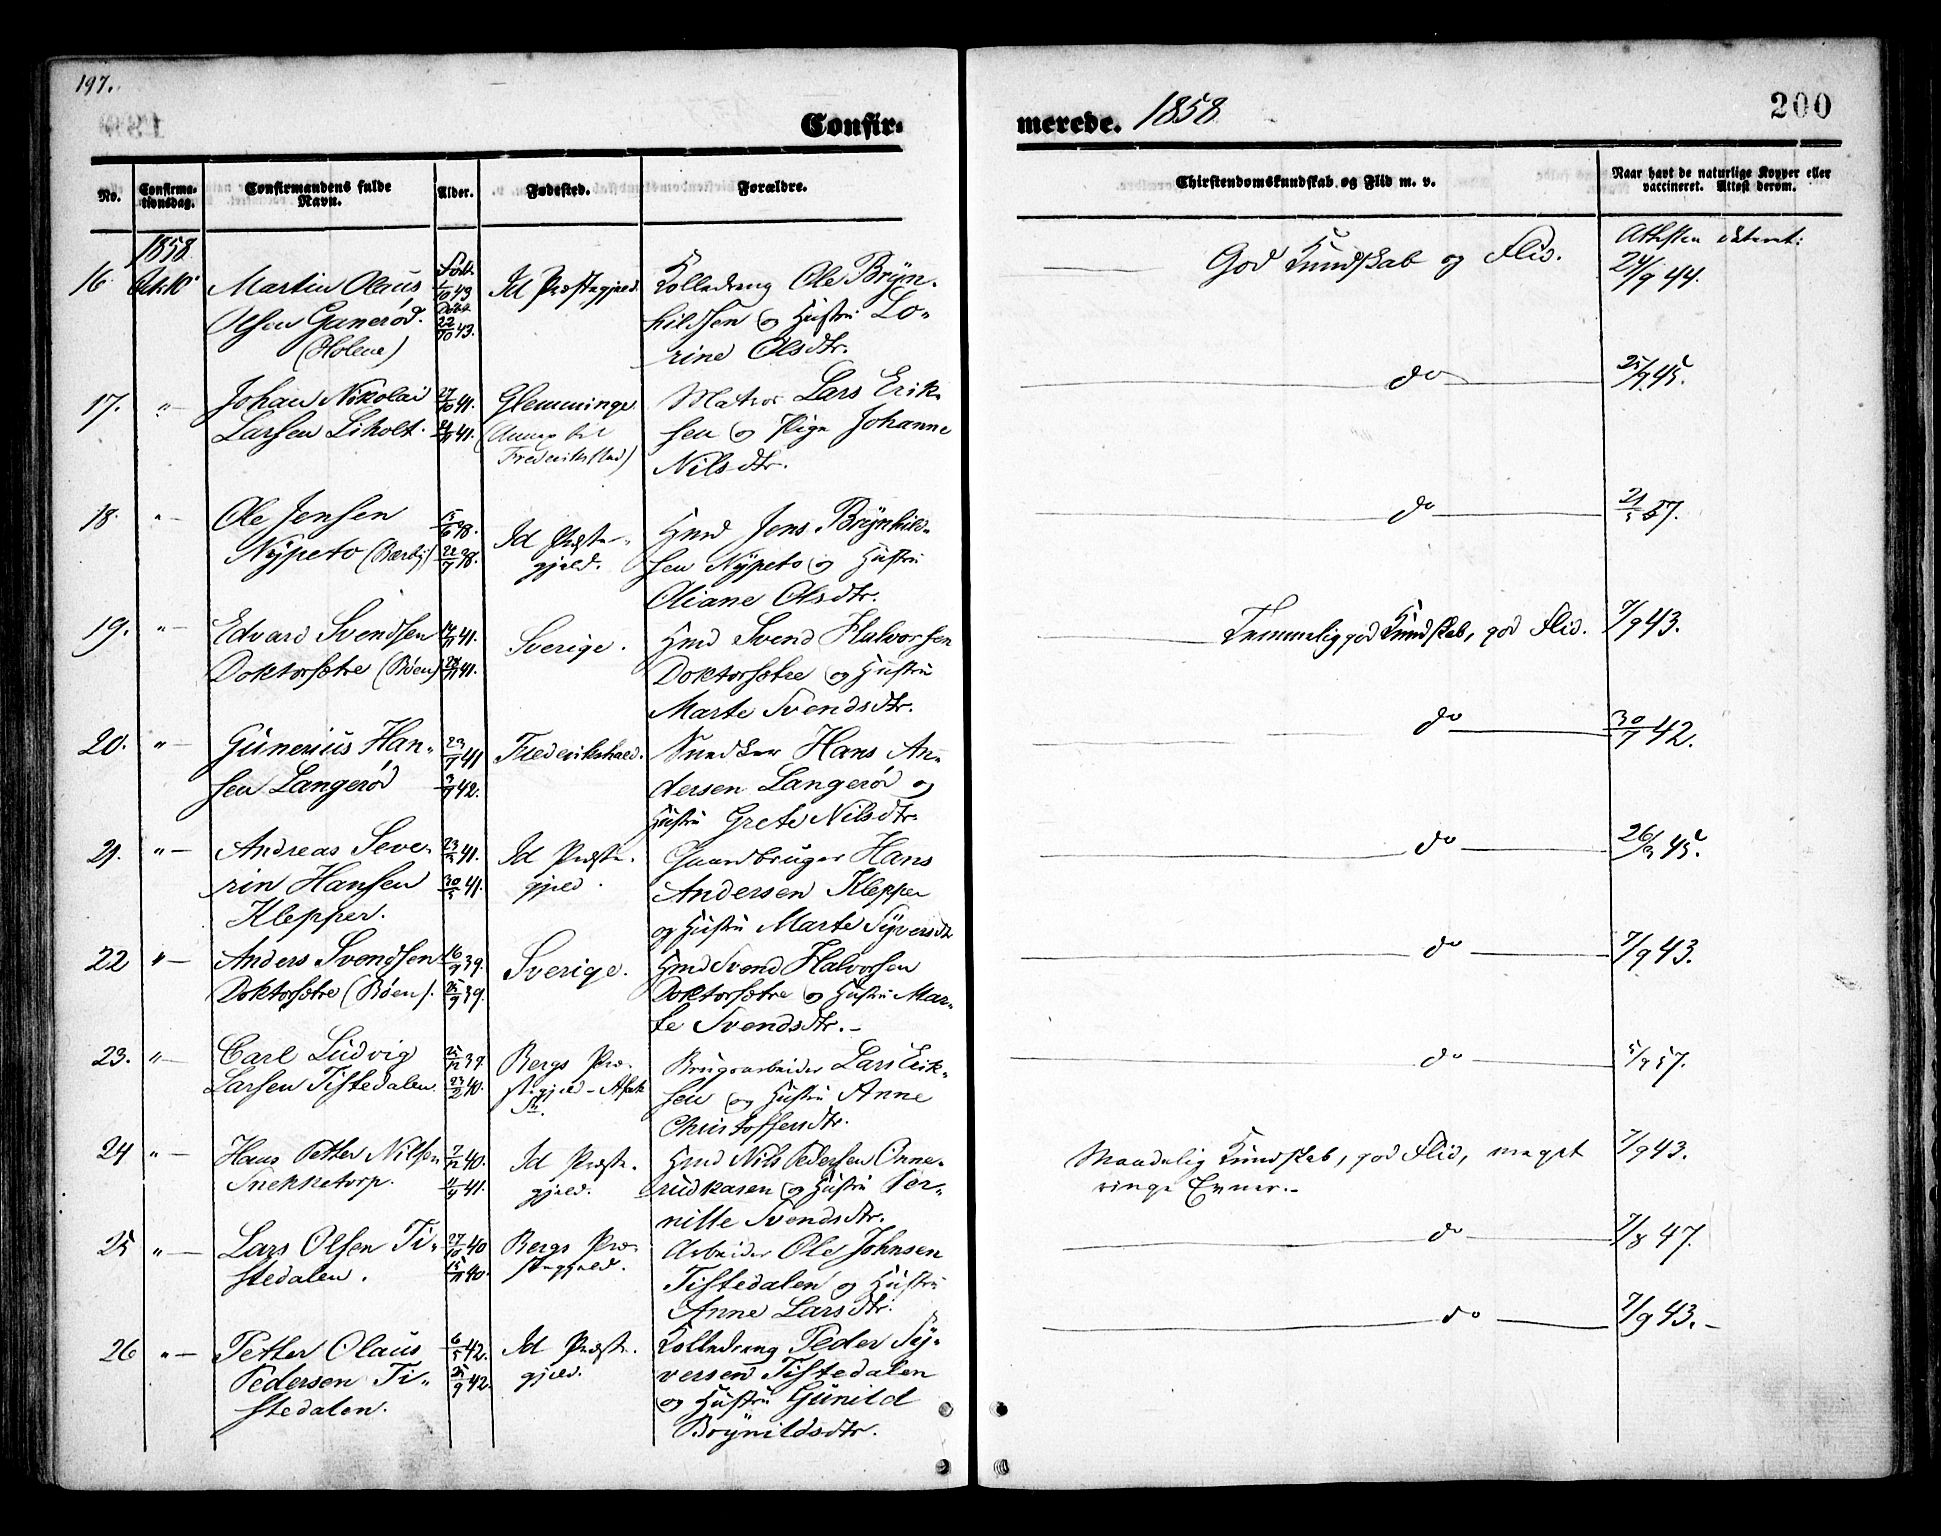 197.
Confir-
merede. 1858
200
No.
Confirma-
tionsdag.
Confirmandens fulde
Navn.
Alder.
Fødested.
Forældre.
Chirstendomskundskab og Flid m. v.
Naar havt de naturlige Kopper eller
vaccineret. Attest derom.
1858
16 Martin Olaus
Olsen Ganerød.
(Holene)
Født
1/10 43
Døbt
22/10 43.
Id Præstegjeld.
Kolledreng Ole Brÿn-
hildsen og Hustru Lo-
rine Olsdtr.
God Kundskab og Flid.
Attesten dateret:
24/9 44.
17. "— Johan Nikolai
Larsen Liholt.
27/10 41.
21/11 41.
Glemminge
(Annex til
Frederikstad)
Matros Lars Erik-
sen og Pige Johanne
Nilsdtr.
do
25/9 45.
18. "— Ole Jensen
Nÿpeto (Bærbÿ)
38.
22/7 38.
Id Præste-
gjeld.
Hmd Jens Brÿnhild-
sen Nÿpeto og Hustru
Oliane Olsdtr.
do
21/5 57.
19. "— Edvard Svendsen
Doktorsætre (Bøen)
14/11 41.
28/11 41.
Sverige.
Hmd Svend Halvorsen
Doktorsætre og Hustru
Marte Svendsdtr.
Temmelig god Kundskab, god Flid.
7/9 43.
20. "— Gunerius Han-
sen Langerød
23/7 41
3/7 42.
Frederikshald.
Snedker Hans An-
dersen Langerød og
Hustru Grete Nilsdtr.
do
30/7 42.
21. "— Andreas Seve-
rin Hansen
Klepper.
23/3 41.
30/5 41.
Id Præste-
gjeld.
Gaardbruger Hans
Andersen Klepper
og Hustru Marte Sÿversdt
do
26/9 45.
22 "— Anders Svendsen
Doktorsætre (Bøen).
16/9 39.
25/9 39.
Sverige.
Hmd Svend Halvorsen
Doktorsætre og Hustru Mar-
te Svendsdtr.-
do
7/9 43.
23. "— Carl Ludvig
Larsen Tistedalen.
25/12 39.
23/2 40.
Bergs Præ-
stegjeld
Brugsarbeider Lars Erik-
sen og Hustru Anne
Christoffersdtr.
do
5/9 57.
24 "— Hans Petter Nilsen
Snekketorp.
7/12 40.
11/4 41.
Id Præste-
gjeld.
Hmd Nils Pedersen Onne-
rudkasen og Hustru Per-
nille Svendsdtr.
Maadelig Kundskab, god Flid, meget
ringe Evner.-
7/9 43.
25 "— Lars Olsen Ti-
stedalen.
27/10 40
15/11 40.
Bergs Præ-
stegjeld.
Arbeider Ole Johnsen
Tistedalen og Hustru
Anne Larsdtr.
do
7/8 47.
26 "— Petter Olaus
Pedersen Ti-
stedalen.
6/5 42.
25/9 42.
Id Præste-
gjeld.
Kolledreng Peder Sÿ-
versen Tistedalen
og Hustru Gunild
Brÿnildsdtr.
do
7/9 43.-